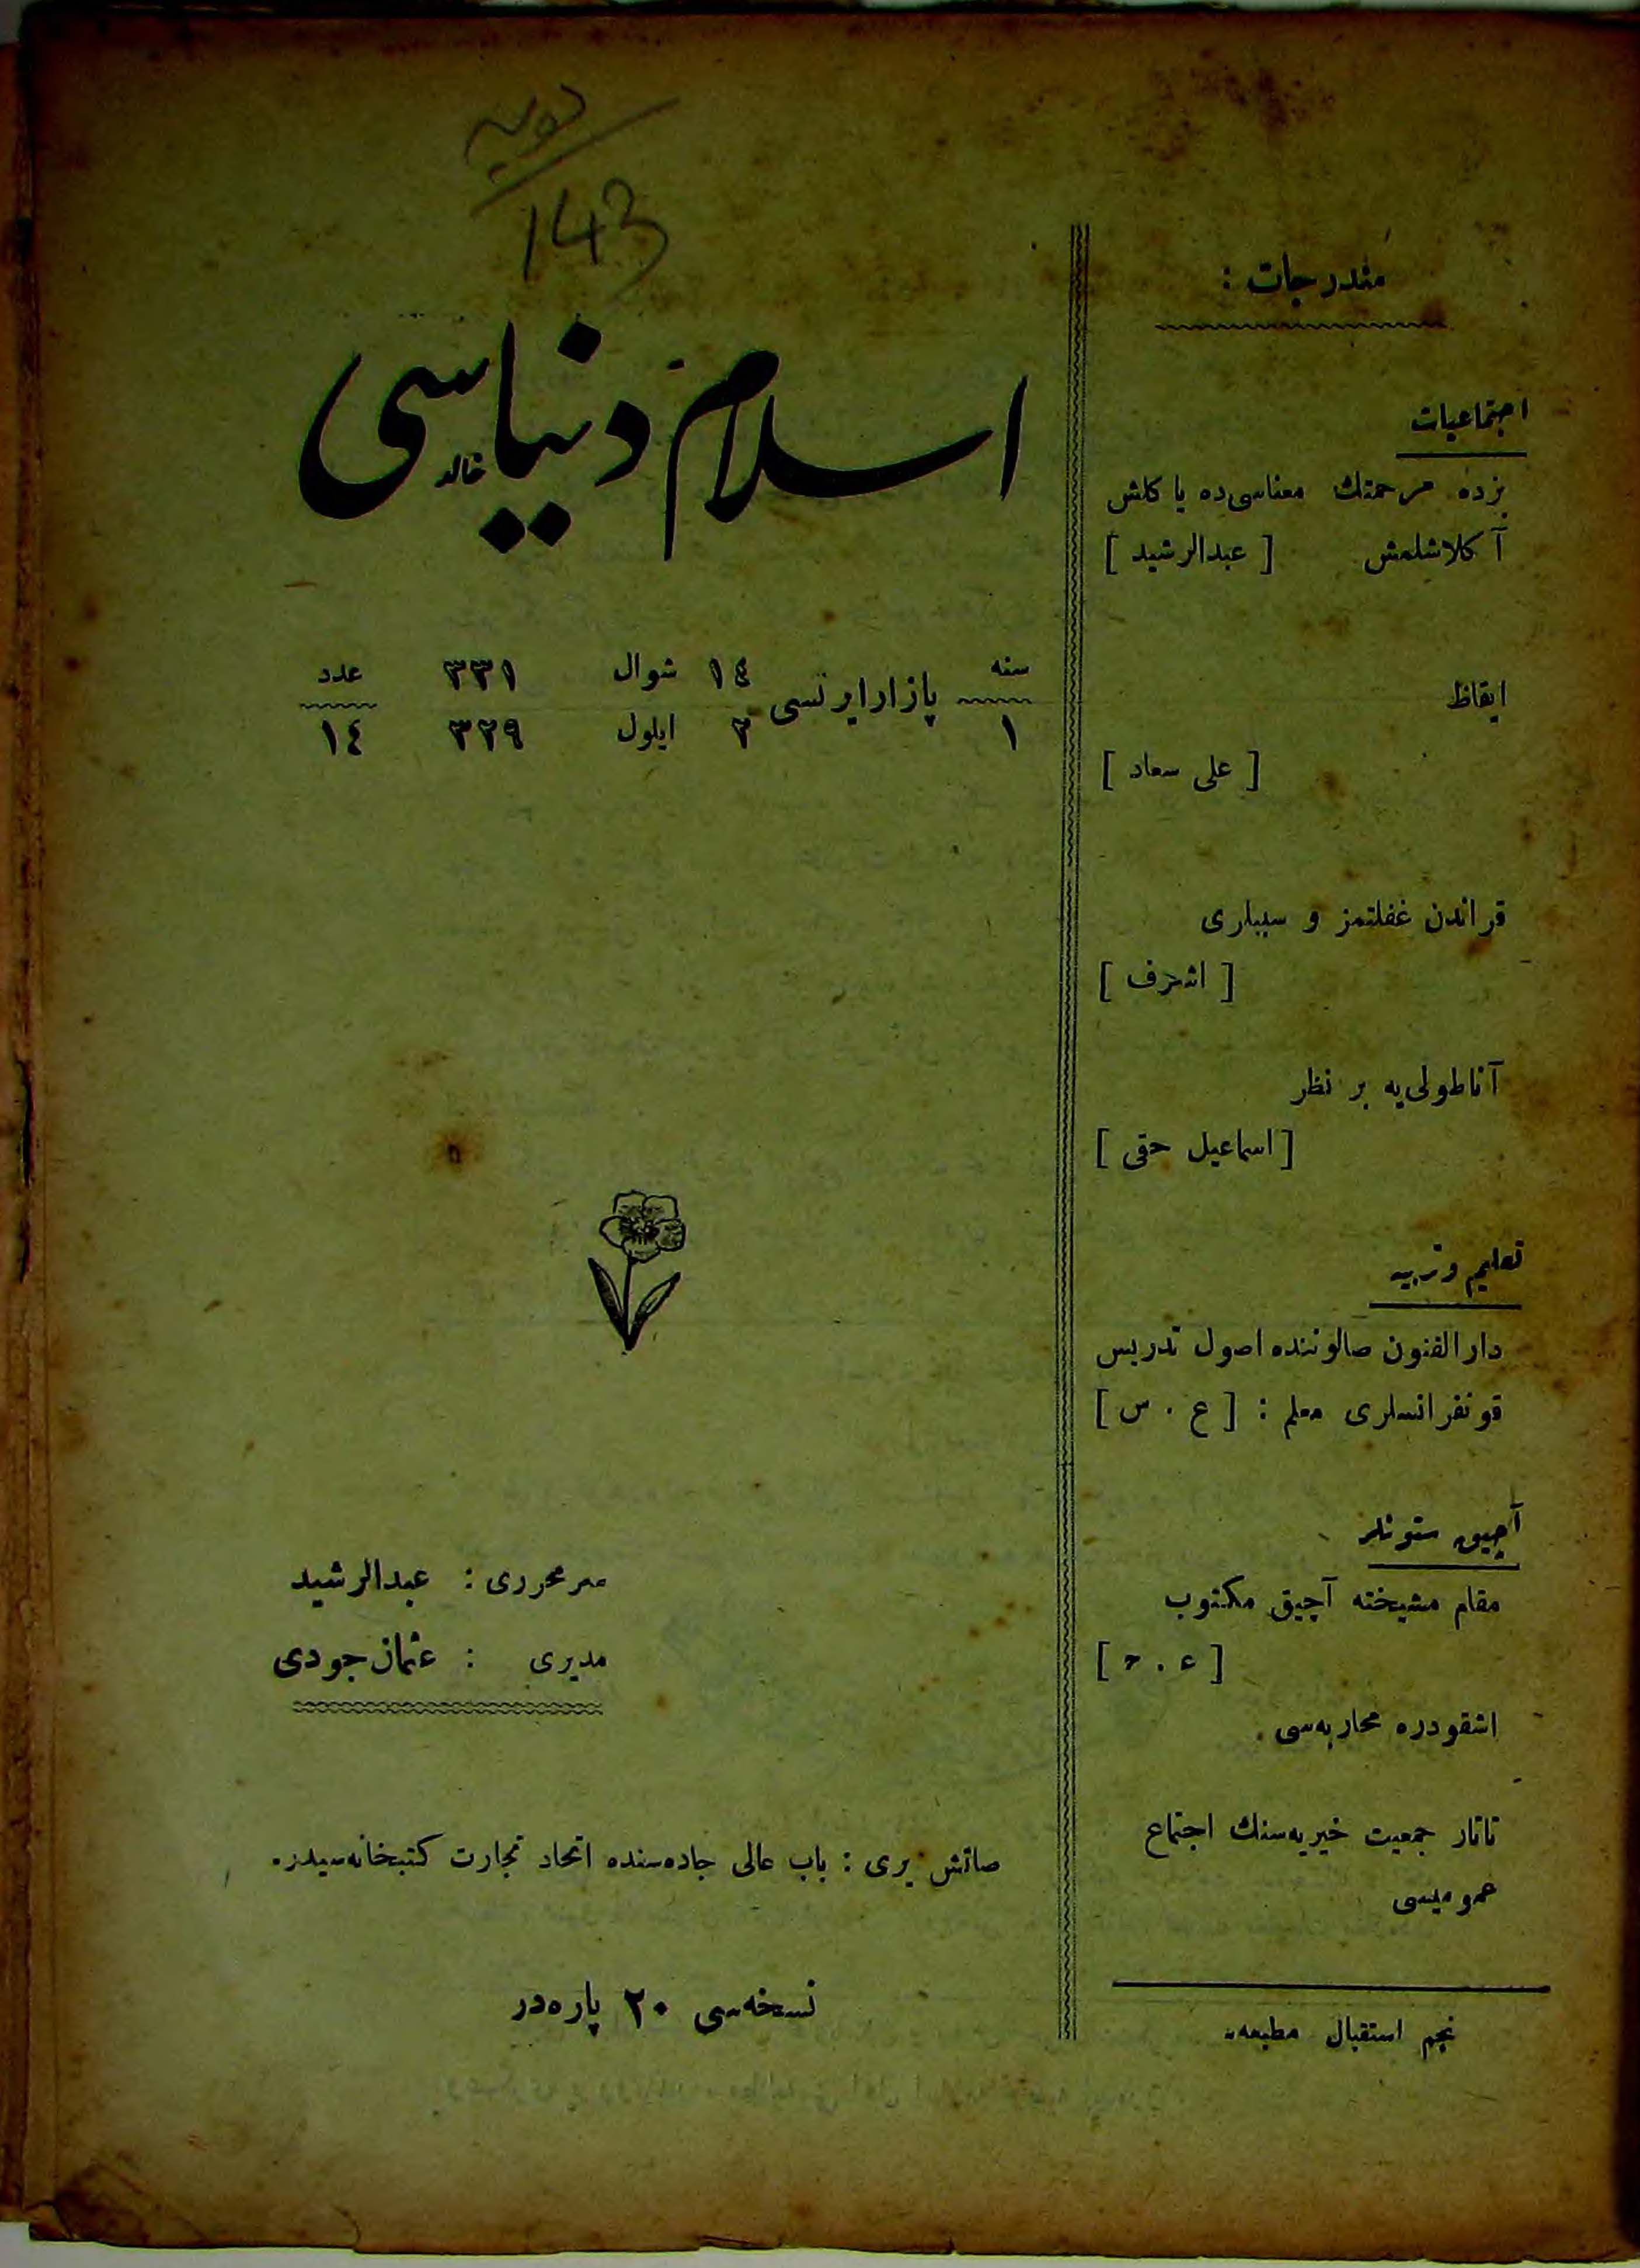 143
مندرجات :
اجتماعیات
بزده مرحمتك معناسی‌ده یا كلش
آ كلاشلمش [ عبدالرشید ]
ایقاظ
[ علی سعاد ]
قراندن غفلتمز و سببلری
[ اشرف ]
آناطولی‌یه بر نظر
[ اسماعیل حقی ]
تعلیم و تربیه
دار الفنون صالوننده اصول تدریس
قونفرانسلری معلم : [ ع . س ]
آچیق ستونلر
مقام مشیخته آچیق مكتوب
[ ع . ح ]
اشقودره محاربه‌سی .
تاتار جمعیت خیریه‌سنك اجتماع
عمومیسی
نجم استقبال مطبعه‌سی
اسلام دنیاسی
خالد
سنه ١
پازار ایرتسی
١٤ شوال ٣٣١
٢ ایلول ٣٢٩
عدد ١٤
سرمحرری : عبدالرشید
مدیری : عثمان جودی
صاتش یری : باب عالی جاده‌سنده اتحاد تجارت كتبخانه‌سیدر.
نسخه‌سی ٢٠ پاره‌در